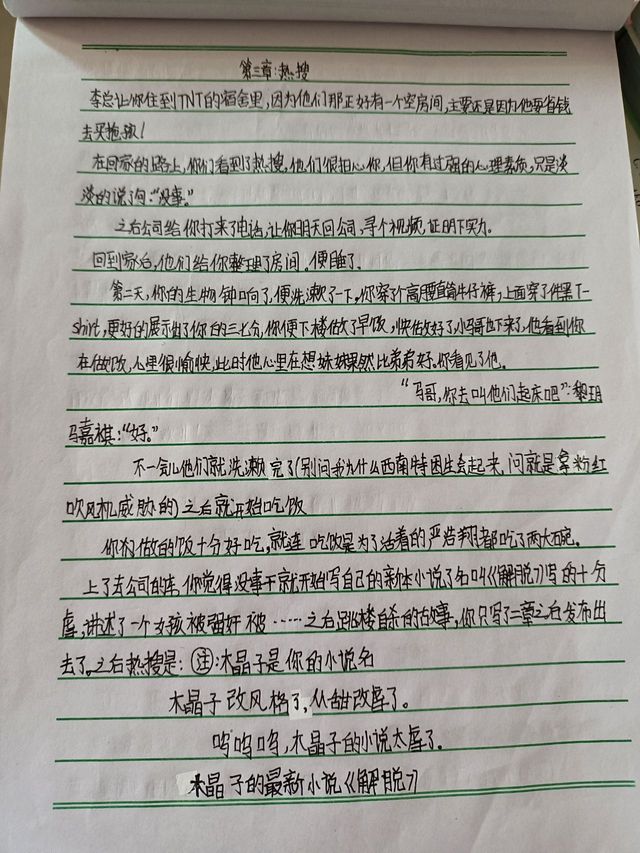 第三章:热搜
李总让你住到TNT的宿舍里,因为他们那正好有一个空房间,主要还是因为他要省钱
去买拖鞋!
在回家的路上,你们看到了热搜,他们很担心你,但你有过强的心理素质,只是淡
淡的说了句:“没事。”
之后公司给你打来了电话,让你明天回公司,寻个视频,证明下实力。
回到家后,他们给你整理了房间。便睡了。
第二天,你的生物钟响了,便洗漱了一下。你穿了个高腰直筒牛仔裤,上面穿了件黑T-
shirt,更好的展示出了你的三七分,你便下楼做了早饭,快做好了,小马哥也下来了,他看到你
在做饭,心里很愉快,此时他心里在想妹妹果然比弟弟好。你看见了他。
“马哥,你去叫他们起床吧”:黎玥
马嘉祺:“好。”
不一会儿他们就洗漱完了(别问我为什么西南特困生会起来,问就是拿粉红
吹风机威胁的)之后就开始吃饭
你们做的饭十分好吃,就连吃饭是为了活着的严浩翔都吃了两大碗。
上了去公司的车,你觉得没事干就开始写自己的新本小说了名叫《解脱》写的十分
虐,讲述了一个女孩被强奸被……之后跳楼自杀的故事,你只写了二章之后发布出
去了。之后热搜是:注:木晶子是你的小说名
木晶子改风格了,从甜改虐了。
呜呜呜,木晶子的小说太虐了。
木晶子的最新小说《解脱》